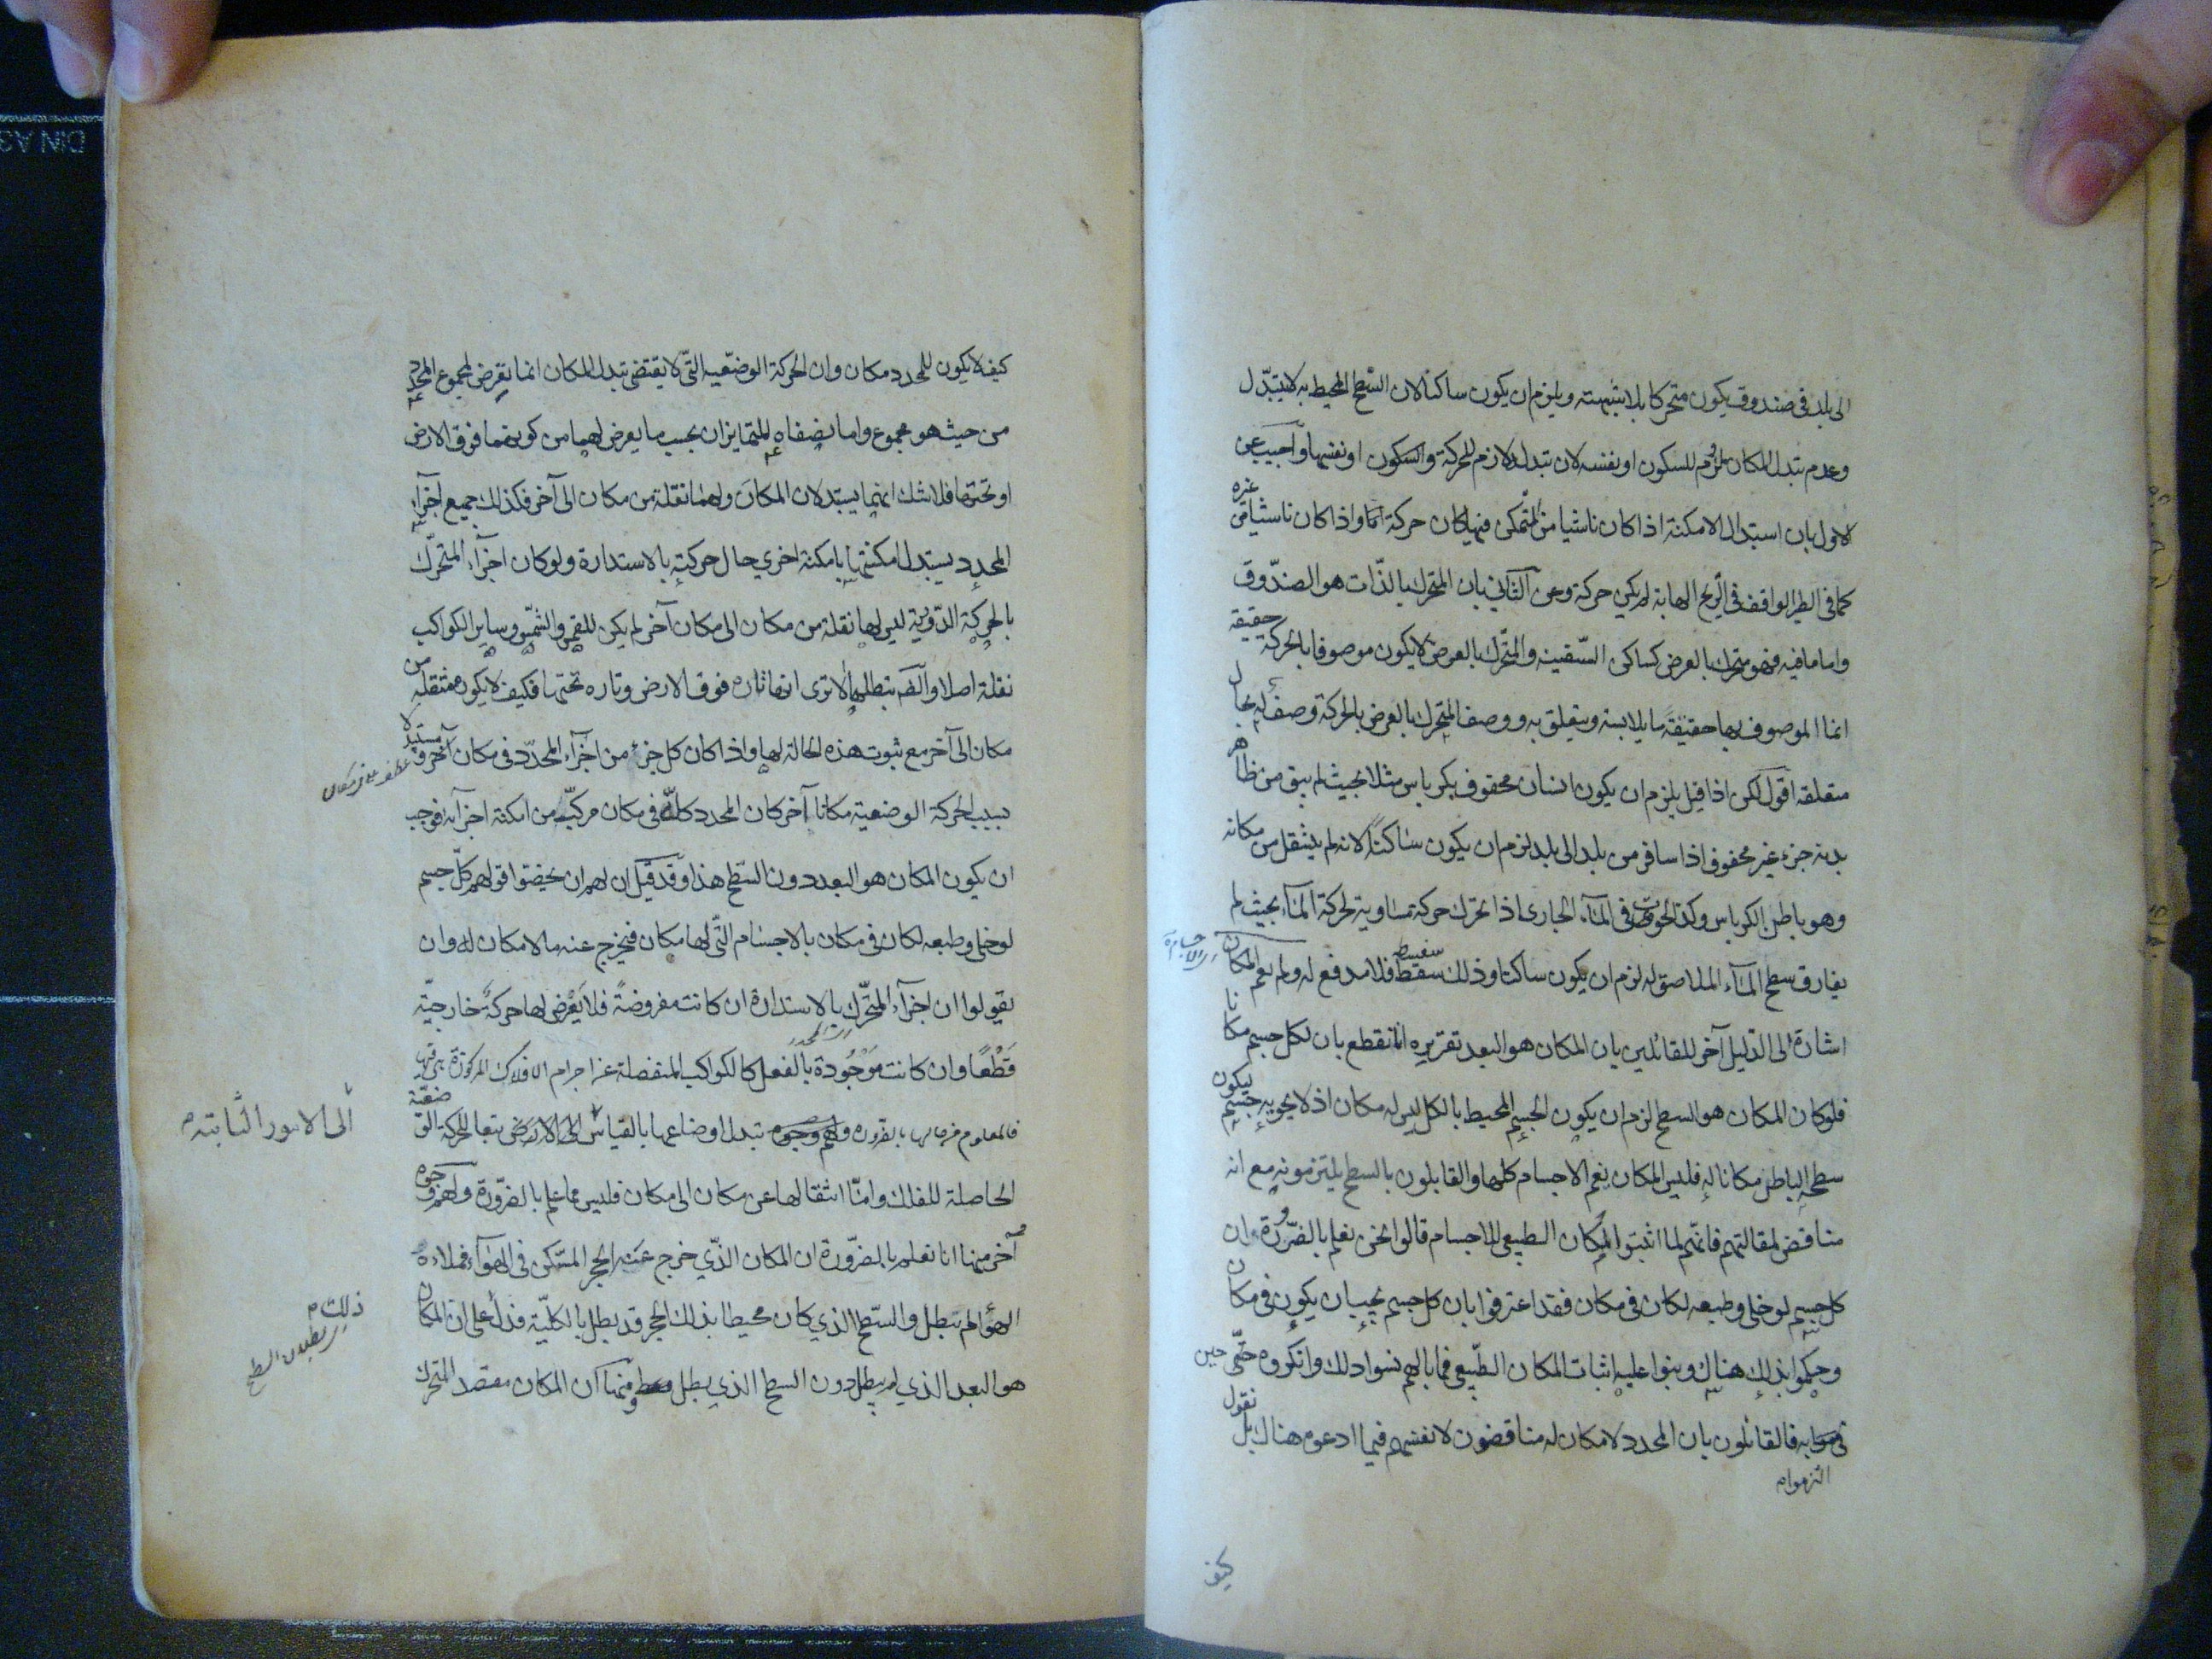 الى بلد فى صندوق يكون متحركا بلا شبهته ويلزم ان يكون ساكنا لان السطح المحيط به لا يتبدّل
وعدم تبدل المكان ملزوم للسكون او نفسه لان تبدله لازم للحركة والسكون او نفسها واجيب عن
الاول بان استبدال الامكنة اذا كان ناشيا من المتمكن فيها كان حركة امّا واذا كان ناشيا من غيره
كما فى الطير الواقف فى الريح الهابة لم يكن حركة وعن الثانى بان المتحرك بالذّات هو الصندّوق
واما ما فيه فهو متحرك بالعرض كساكن السّفينه والمتحّرك بالعرض لا يكون موصوفا بالحركة حقيقة
انما الموصوف بها حقيقةً ما يلابسه ويتعلق به ووصف المتحرك بالعرض بالحركة وصف له بحال
متعلقه اقول لكن اذا قيل يلزم ان يكون انسان محفوف بكرباس مثلا بحيث لم يبق من ظاهر
بدنه جزء غير محفوف اذا سافر من بلد الى بلد لزم ان يكون ساكناً لانه لم ينتقل من مكانه
وهو باطن الكرباس وكذا الحوت فى المآء الجارى اذا تحرك حركة مساوية لحركة المآء بحيث لم
يفارق سطح المآء الملاصق له لزم ان يكون ساكنا وذلك سفسطه فلا مدفع له ولم يعم المكان الاجسام
اشارة الى الدليل آخر للقائلين بان المكان هو البعد تقريره انا نقطع بان لكل جسم مكانا
فلو كان المكان هو السطح لزم ان يكون الجسم المحيط بالكل ليس له مكان اذ لا يحويه جسم ليكون
سطحه الباطن مكانا له فليس المكان يعم الاجسام كلها والقايلون بالسطح يلتزمونه مع انه
مناقض لمقالتهم فانهّم لما اثبتوا المكان الطبيعى للاجسام قالوا نحن نعلم بالضّرورة ان
كل جسم لو خلى وطبعه لكان فى مكان فقد اعترفوا بان كل جسم يجب ان يكون فى مكان
وحكموا بذلك هناك وبنوا عليه اثبات المكان الطبّيعى فما بالهم نسوا ذلك وانكروه حتّى حين
التزموا به فالقائلون بان المحدد لا مكان له مناقضون لانفسهم فيما ادعوه هناك بل نقول
كيف
كيف لا يكون للمحدد مكان وان الحركة الوضعّيه التّى لا يقتضى تبدل المكان انما يعرض لمجموع المحدد
من حيث هو مجموع واما نصفاه المتمايزان بحسب ما يعرض لهما من كونهما فوق الارض
او تحتها فلا شك انهما يستبدلان المكانَ ولهما نقلة من مكان الى آخر فكذلك جميع اجزآء
المحدد يستبدل امكنتها بامكنة اخرى حال حركته بالاستدارة ولو كان اجزآء المتحرّك
بالحركة الدّوريّة ليس لها نقلة من مكان الى مكان آخر لم يكن للقمر والشمس وساير الكواكب
نقلة اصلا والّفه يتطلبها الا ترى انها تاره فوق الارض وتاره تحتها فكيف لا يكون منتقله من
مكان الى آخر مع ثبوت هذه الحالة لها واذا كان كل جزء من اجزآء المحدّد فى مكان آخر ومستبدلا
عطف على فى مكان
بسبب الحركة الوضعية مكانا آخر كان المحدد كلّه فى مكان مركّب من امكنة اجزآئه فوجب
ان يكون المكان هو البعد دون السّطح هذا وقد قيل ان لهم ان يخصّوا قولهم كلّ جسم
لو خلى وطبعه لكان فى مكان بالاجسام التّى لها مكان فيخرج عنه ما لا مكان له وان
يقولوا ان اجزآء المتحّرك بالاستدارة ان كانت مفروضةً فلا يَعْرض لها حركةٌ خارجيّة
قَطْعًا وان كانت مَوْجُودة بالفعل كالكواكب المنفصلة عن اجرام الافلاك المركوزة هى فيها
فالمعلوم من حالها بالضروره تبدل اوضاعها بالقياس الى الامور الثابته تبعا للحركة الوضعيّة
الحاصلة للفلك وامّا انتقالها عن مكان الى مكان فليس مما علم بالضّرورة ولهم وجوه
آخر منها انا نعلم بالضّرورة ان المكان الذّى خرج عنه الحجر المسّكن فى الهوآء فملاءه
الهوآ لم يبطل والسّطح الذى كان محيطا بذلك الحجر قد بطل بالكليّة فدل على ان المكان
هو البعد الذى لم يبطل دون السطح الذى بطل ومنها ان المكان مقصد المتحرك
ذلك م
بطلان السطح